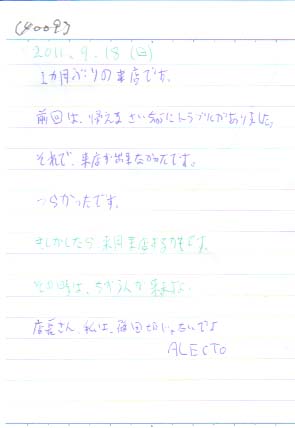 (4009)
2011.9.18(日)
1カ月ぶりの来店です。
前回は、帰えるさいちゅうにトラブルがありました。
それで、来店が出来なかったです。
つらかったです。
もしかしたら、来月来店するかもです。
その時は、ちがう人が来ます。
店長さん、私は、じゃないです
ALECTO